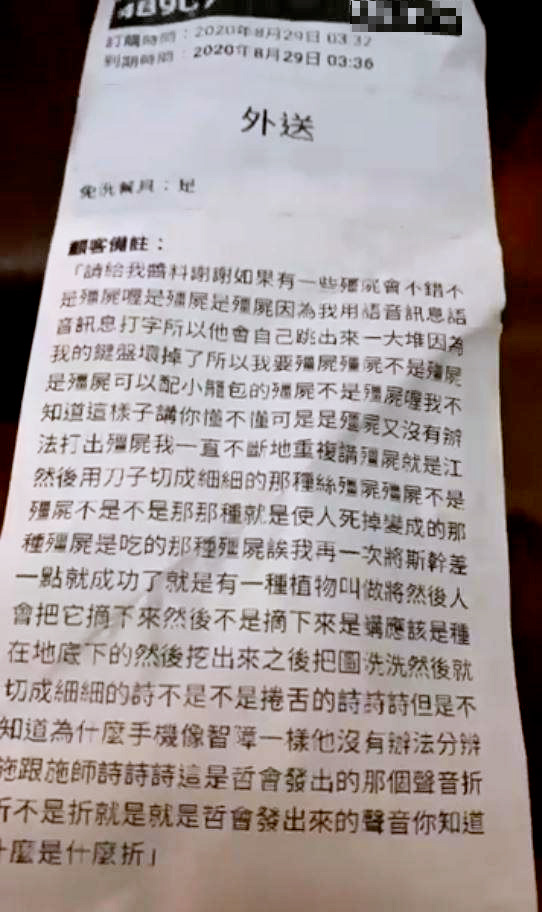 訂購時間：2020年8月29日 03:32
到期時間：2020年8月29日 03:36
外送
免洗餐具：是
顧客備註：
「請給我醬料謝謝如果有一些殭屍會不錯不
是殭屍喔是殭屍是殭屍因為我用語音訊息語
音訊息打字所以他會自己跳出來一大堆因為
我的鍵盤壞掉了所以我要殭屍殭屍不是殭屍
是殭屍可以配小籠包的殭屍不是殭屍喔我不
知道這樣子講你懂不懂可是是殭屍又沒有辦
法打出殭屍我一直不斷地重複講殭屍就是江
然後用刀子切成細細的那種絲殭屍殭屍不是
殭屍不是不是那那種就是使人死掉變成的那
種殭屍是吃的那種殭屍誒我再一次將斯幹差
一點就成功了就是有一種植物叫做將然後人
會把它摘下來然後不是摘下來是講應該是種
在地底下的然後挖出來之後把圖洗洗然後就
切成細細的詩不是不是捲舌的詩詩詩但是不
知道為什麼手機像智障一樣他沒有辦法分辨
施跟施師詩詩詩這是哲會發出的那個聲音折
折不是折就是就是哲會發出來的聲音你知道
什麼是什麼折」